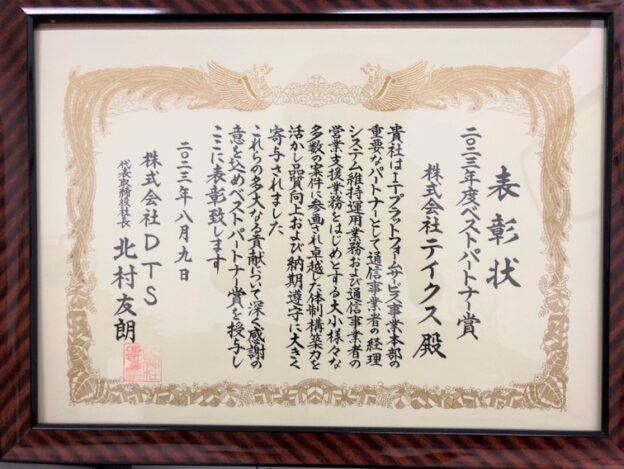 表彰状
二〇二三年度ベストパートナー賞
株式会社テイクス 殿
貴社はITプラットフォームサービス事業本部の
重要なパートナーとして通信事業者の経理
システム維持運用業務および通信事業者の
営業支援業務をはじめとする大小様々な
多数の案件に参画され卓越した体制構築力を
活かし品質向上および納期遵守に大きく
寄与されました
これらの多大なる貢献について深く感謝の
意を込めベストパートナー賞を授与し
ここに表彰致します
二〇二三年八月九日
株式会社DTS
代表取締役社長 北村友朗